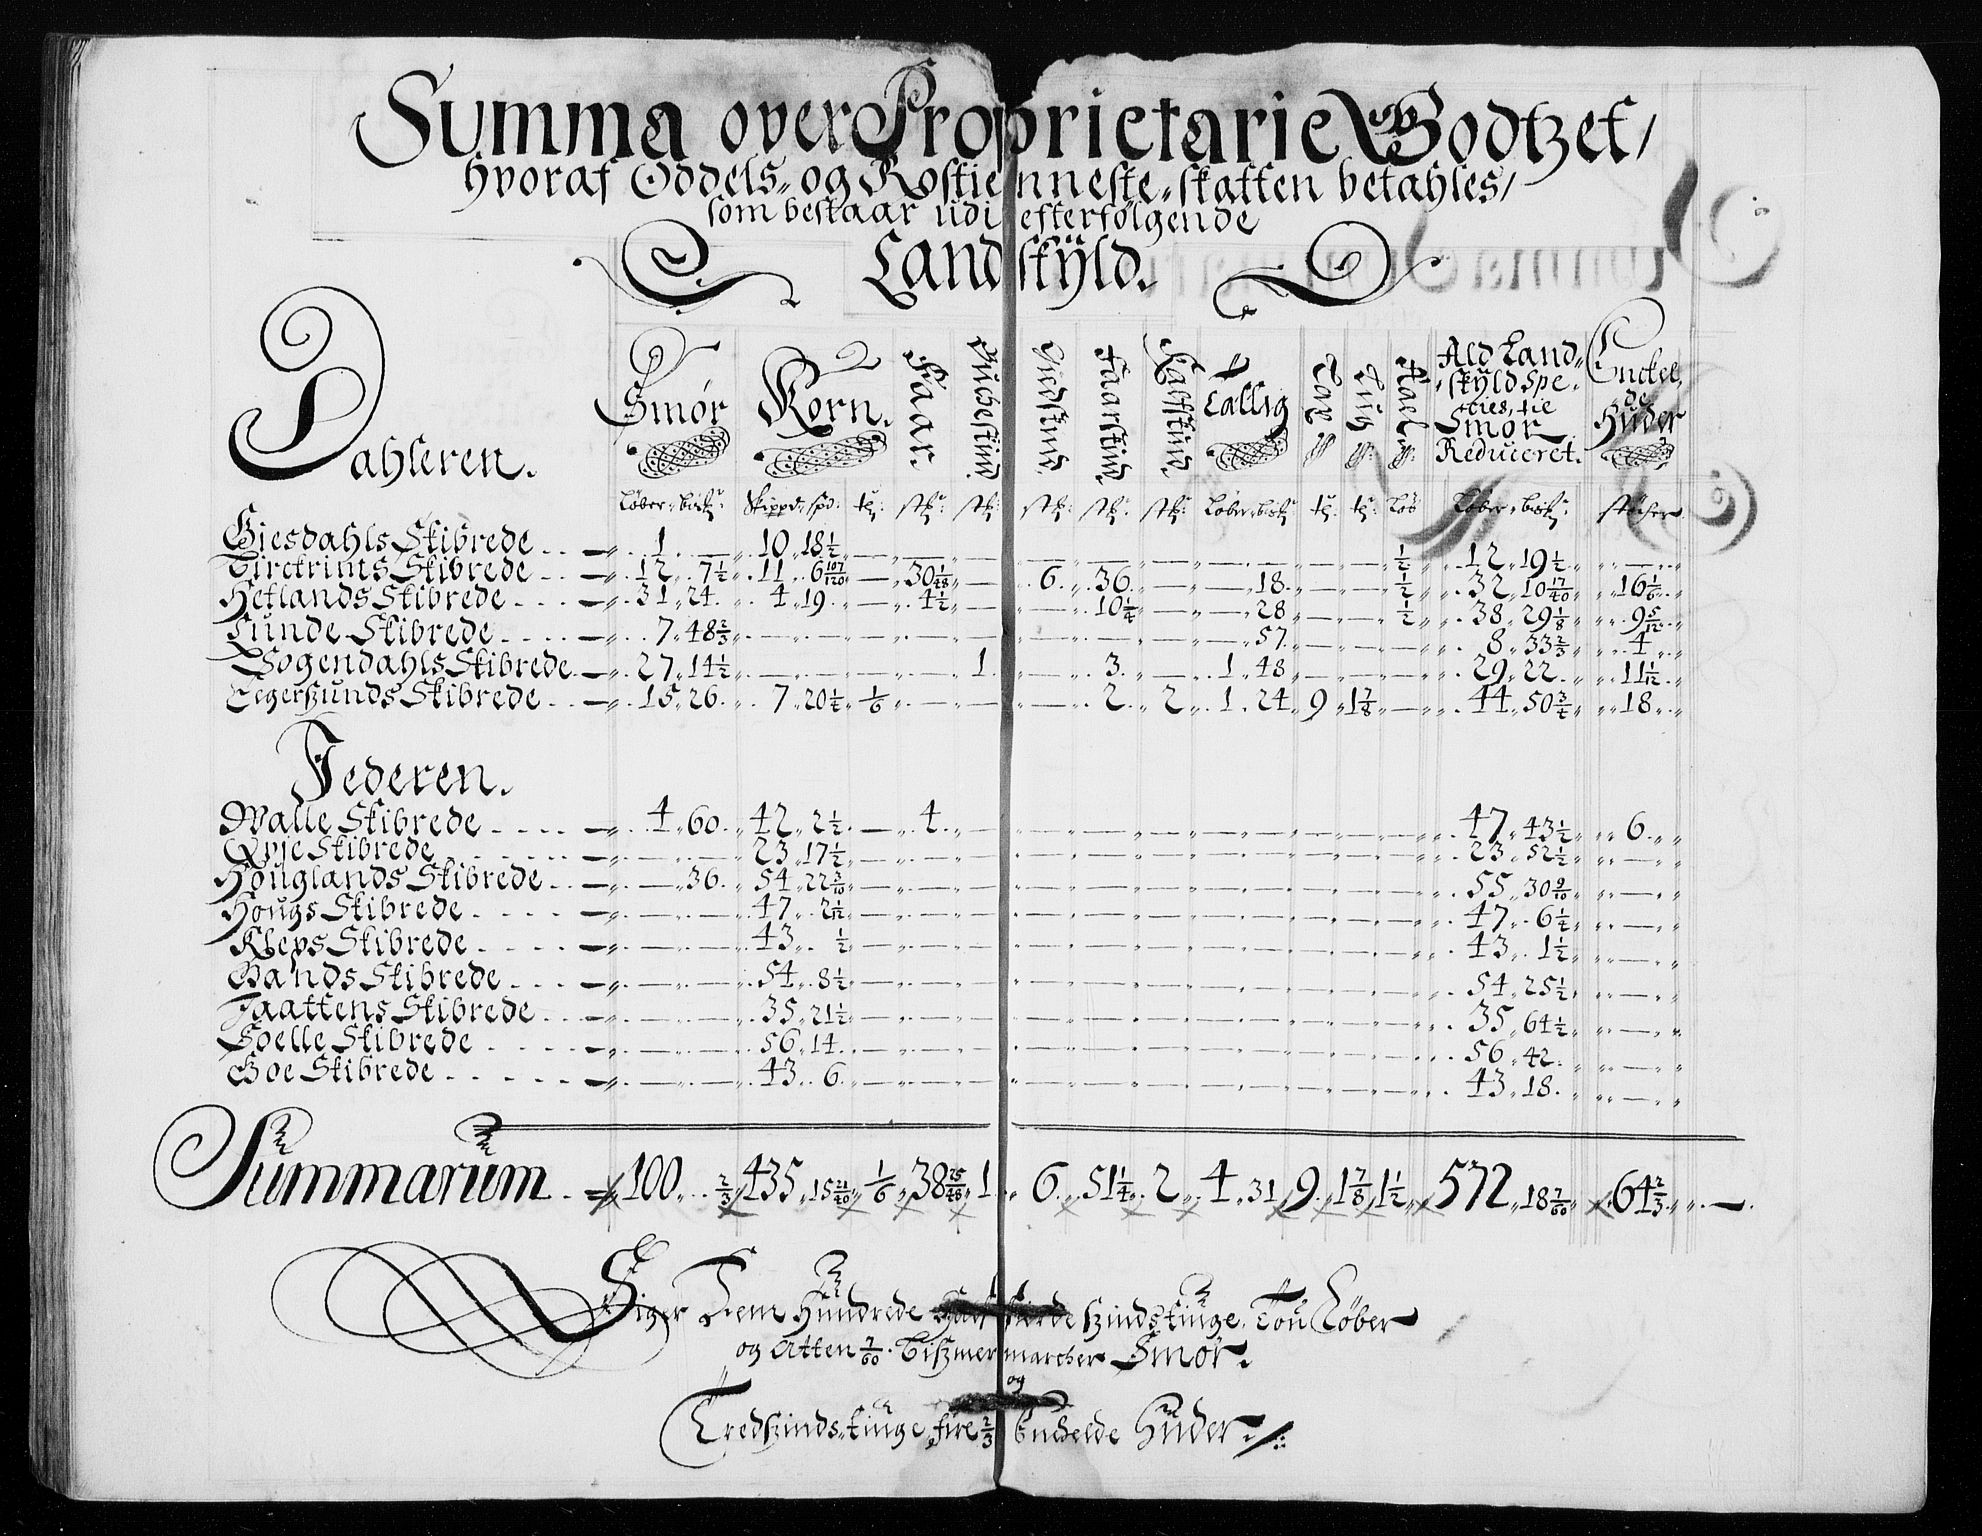 Summa over Proprietarie Godtzet,
hvoraf Oddels- og Rostienneste-skatten betahles,
som bestaar udi efterfølgende
Landskÿld.
Dahleren. Smør Korn. Faar. Buckeskind Giedskind Faarskind Kalfskind Tallig Tag Lug Aael Ald Land-
skÿld spe-
cies, tie
Smør
Reduceret. Enckel-
de
Hüder
Løber. bisk: Skippd: spd: tn: stk: stk: stk: stk: stk: Løber. bisk: tn: tn: Løb Løber. bisk: støcker
Giesdahls Skibrede . . . — 1 — 10 18½ — — — — — — — — — — ½ 12 19½ —
Birckrims Skibrede . . — 12 7½ 11 6 107/120 — 30 1/48 — 6 36 — — 18 — — ½ 32 10 17/40 16 1/6
Hetlands Skibrede . . . — 31 24 4 19 — 4½ — — 10¼ — — 28 — — ½ 38 29 1/8 9 5/12
Lunde Skibrede . . . . — 7 48⅔ — — — — — — — — — 57 — — — 8 33⅔ 4
Sogendahls Skibrede — 27 14½ — — — — 1 — 3 — 1 48 — — — 29 22 11 1/12
Egersunds Skibrede . . — 15 26 7 20¼ 1/6 — — — 2 2 1 24 9 1 7/8 — 44 50¾ 18
Jederen.
Walle Skibrede . . . . — 4 60 42 2½ — 4 — — — — — — — — — 47 43½ 6
Qvie Skibrede . . . . — — — 23 17½ — — — — — — — — — — — 23 52½ —
Houglands Skibrede . . — — 36 54 22 3/10 — — — — — — — — — — — 55 30 9/10 —
Hougs Skibrede . . . . — — — 47 2 1/12 — — — — — — — — — — — 47 6½ —
Kleps Skibrede . . . . — — — 43 ½ — — — — — — — — — — — 43 1½ —
Gands Skibrede . . . . — — — 54 8½ — — — — — — — — — — — 54 25½ —
Jaattens Skibrede . . . — — — 35 21½ — — — — — — — — — — — 35 64½ —
Soelle Skibrede . . . . — — — 56 14 — — — — — — — — — — — 56 42 —
Goe Skibrede . . . . . — — — 43 6 — — — — — — — — — — — 43 18 —
Summarum . = 100 ⅔ 435 15 21/40 1/6 38 25/48 1 6 51¼ 2 4 31 9 1 7/8 1½ 572 18 7/60 64⅔ —
Siger Fem Hündrede Half fierdesindstiuge Tou Løber
og Atten 7/60. Bismermarcher Smør.
og
Tredsindstiuge fire ⅔ Enckelde Hüder